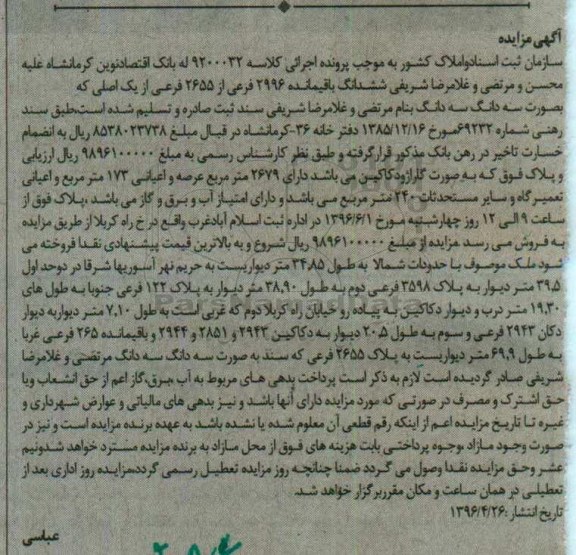 آگهی مزایده
سازمان ثبت اسنادواملاک کشور به موجب پرونده اجرائی کلاسه ۹۲۰۰۰۳۲ له بانک اقتصادنوین کرمانشاه علیه
محسن و مرتضی و غلامرضا شریفی ششدانگ باقیمانده ۲۹۹۶ فرعی از ۲۶۵۵ فرعی از یک اصلی که
بصورت سه دانگ سه دانگ بنام مرتضی و غلامرضا شریفی سند ثبت صادره و تسلیم شده است،طبق سند
رهنی شماره ۶۹۲۳۲مورخ ۱۳۸۵/۱۲/۱۶ دفتر خانه ۳۶-کرمانشاه در قبال مبلغ ۸۵۳۸۰۲۳۷۳۸ ریال به انضمام
خسارت تاخیر در رهن بانک مذکور قرارگرفته و طبق نظر کارشناس رسمی به مبلغ ۹۸۹۶۱۰۰۰۰۰ ریال ارزیابی
و پلاک فوق که به صورت گاراژودکاکین می باشد دارای ۲۶۷۹ متر مربع عرصه و اعیانی ۱۷۳ متر مربع و اعیانی
تعمیرگاه و سایر مستحدثات ۲۴۰ متر مربع می باشد و دارای امتیاز آب و برق و گاز می باشد ،پلاک فوق از
ساعت ۹ الی ۱۲ روز چهارشنبه مورخ ۱۳۹۶/۶/۱ در اداره ثبت اسلام آبادغرب واقع در خ راه کربلا از طریق مزایده
به فروش می رسد مزایده از مبلغ ۹۸۹۶۱۰۰۰۰۰ ریال شروع و به بالاترین قیمت پیشنهادی نقدا فروخته می
شود ملک موصوف با حدودات شمالا به طول ۳۴،۸۵ متر دیواریست به حریم نهر آسوریها شرقا در دوحد اول
۳۹،۵ متر دیوار به پلاک ۳۵۹۸ فرعی دوم به طول ۳۸،۹۰ متر دیوار به پلاک ۱۲۲ فرعی جنوبا به طول های
۱۹،۳۰ متر درب و دیوار دکاکین به پیاده رو خیابان راه کربلا دوم که غربی است به طول ۷،۱۰ متر دیواربه دیوار
دکان ۲۹۴۳ فرعی و سوم به طول ۲۰،۵ دیوار به دکاکین ۲۹۴۳ و ۲۸۵۱ و ۲۹۴۴ و باقیمانده ۲۶۵ فرعی غربا
به طول ۶۹،۹ متر دیواریست به پلاک ۲۶۵۵ فرعی که سند به صورت سه دانگ سه دانگ مرتضی و غلامرضا
شریفی صادر گردیده است لازم به ذکر است پرداخت بدهی های مربوط به آب ،برق،گاز اعم از حق انشعاب ویا
حق اشتراک و مصرف در صورتی که مورد مزایده دارای آنها باشد و نیز بدهی های مالیاتی و عوارض شهرداری و
غیره تا تاریخ مزایده اعم از اینکه رقم قطعی آن معلوم شده یا نشده باشد به عهده برنده مزایده است و نیز در
صورت وجود مازاد ،وجوه پرداختی بابت هزینه های فوق از محل مازاد به برنده مزایده مسترد خواهد شدونیم
عشر وحق مزایده نقدا وصول می گردد ضمنا چنانچه روز مزایده تعطیل رسمی گردد،مزایده روز اداری بعد از
تعطیلی در همان ساعت و مکان مقرربرگزار خواهد شد.
تاریخ انتشار :۱۳۹۶/۴/۲۶
عباسی